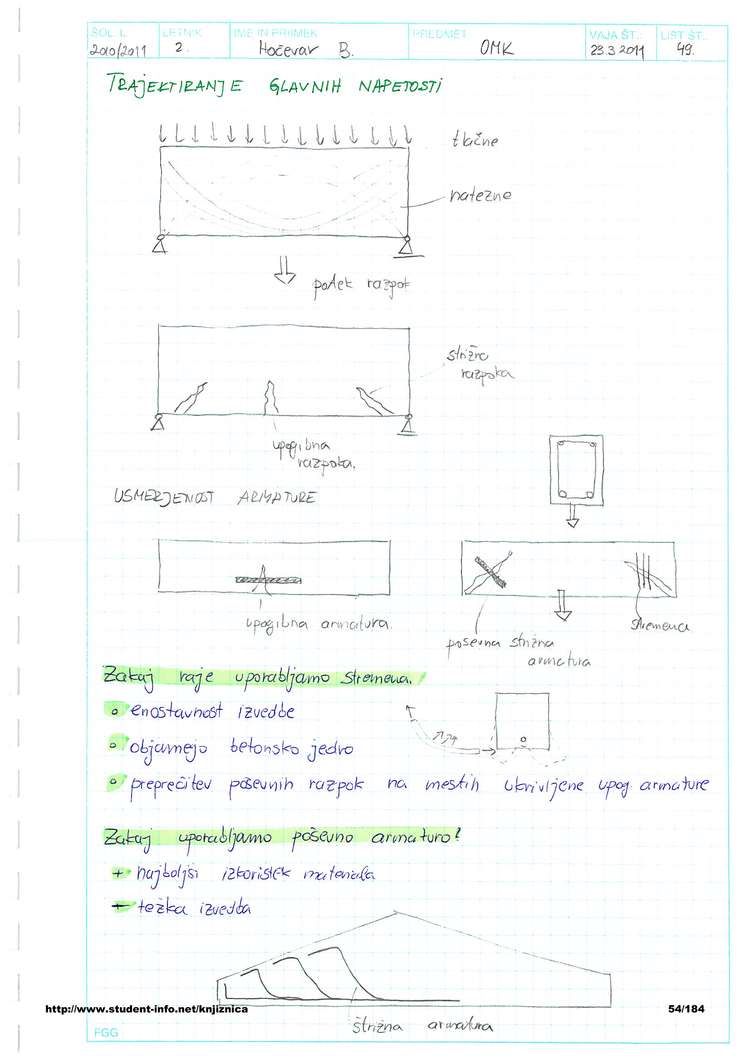 ŠOL. L. LETNIK IME IN PRIIMEK PREDMET VAJA ŠT.: LIST ŠT.:
2010/2011 2. Hočevar B. OMK 23.3.2011 49.
TRAJEKTIRANJE GLAVNIH NAPETOSTI
tlačne
natezne
potek razpok
strižna
razpoka
upogibna
razpoka.
USMERJENOST ARMATURE
upogibna armatura.
stremena
poševna strižna
armatura
Zakaj raje uporabljamo stremena.
enostavnost izvedbe
objamejo betonsko jedro
preprečitev poševnih razpok na mestih ukrivljene upog. armature
Zakaj uporabljamo poševno armaturo?
+ najboljši izkoristek materiala
- težka izvedba
http://www.student-info.net/knjiznica 54/184
strižna armatura
FGG